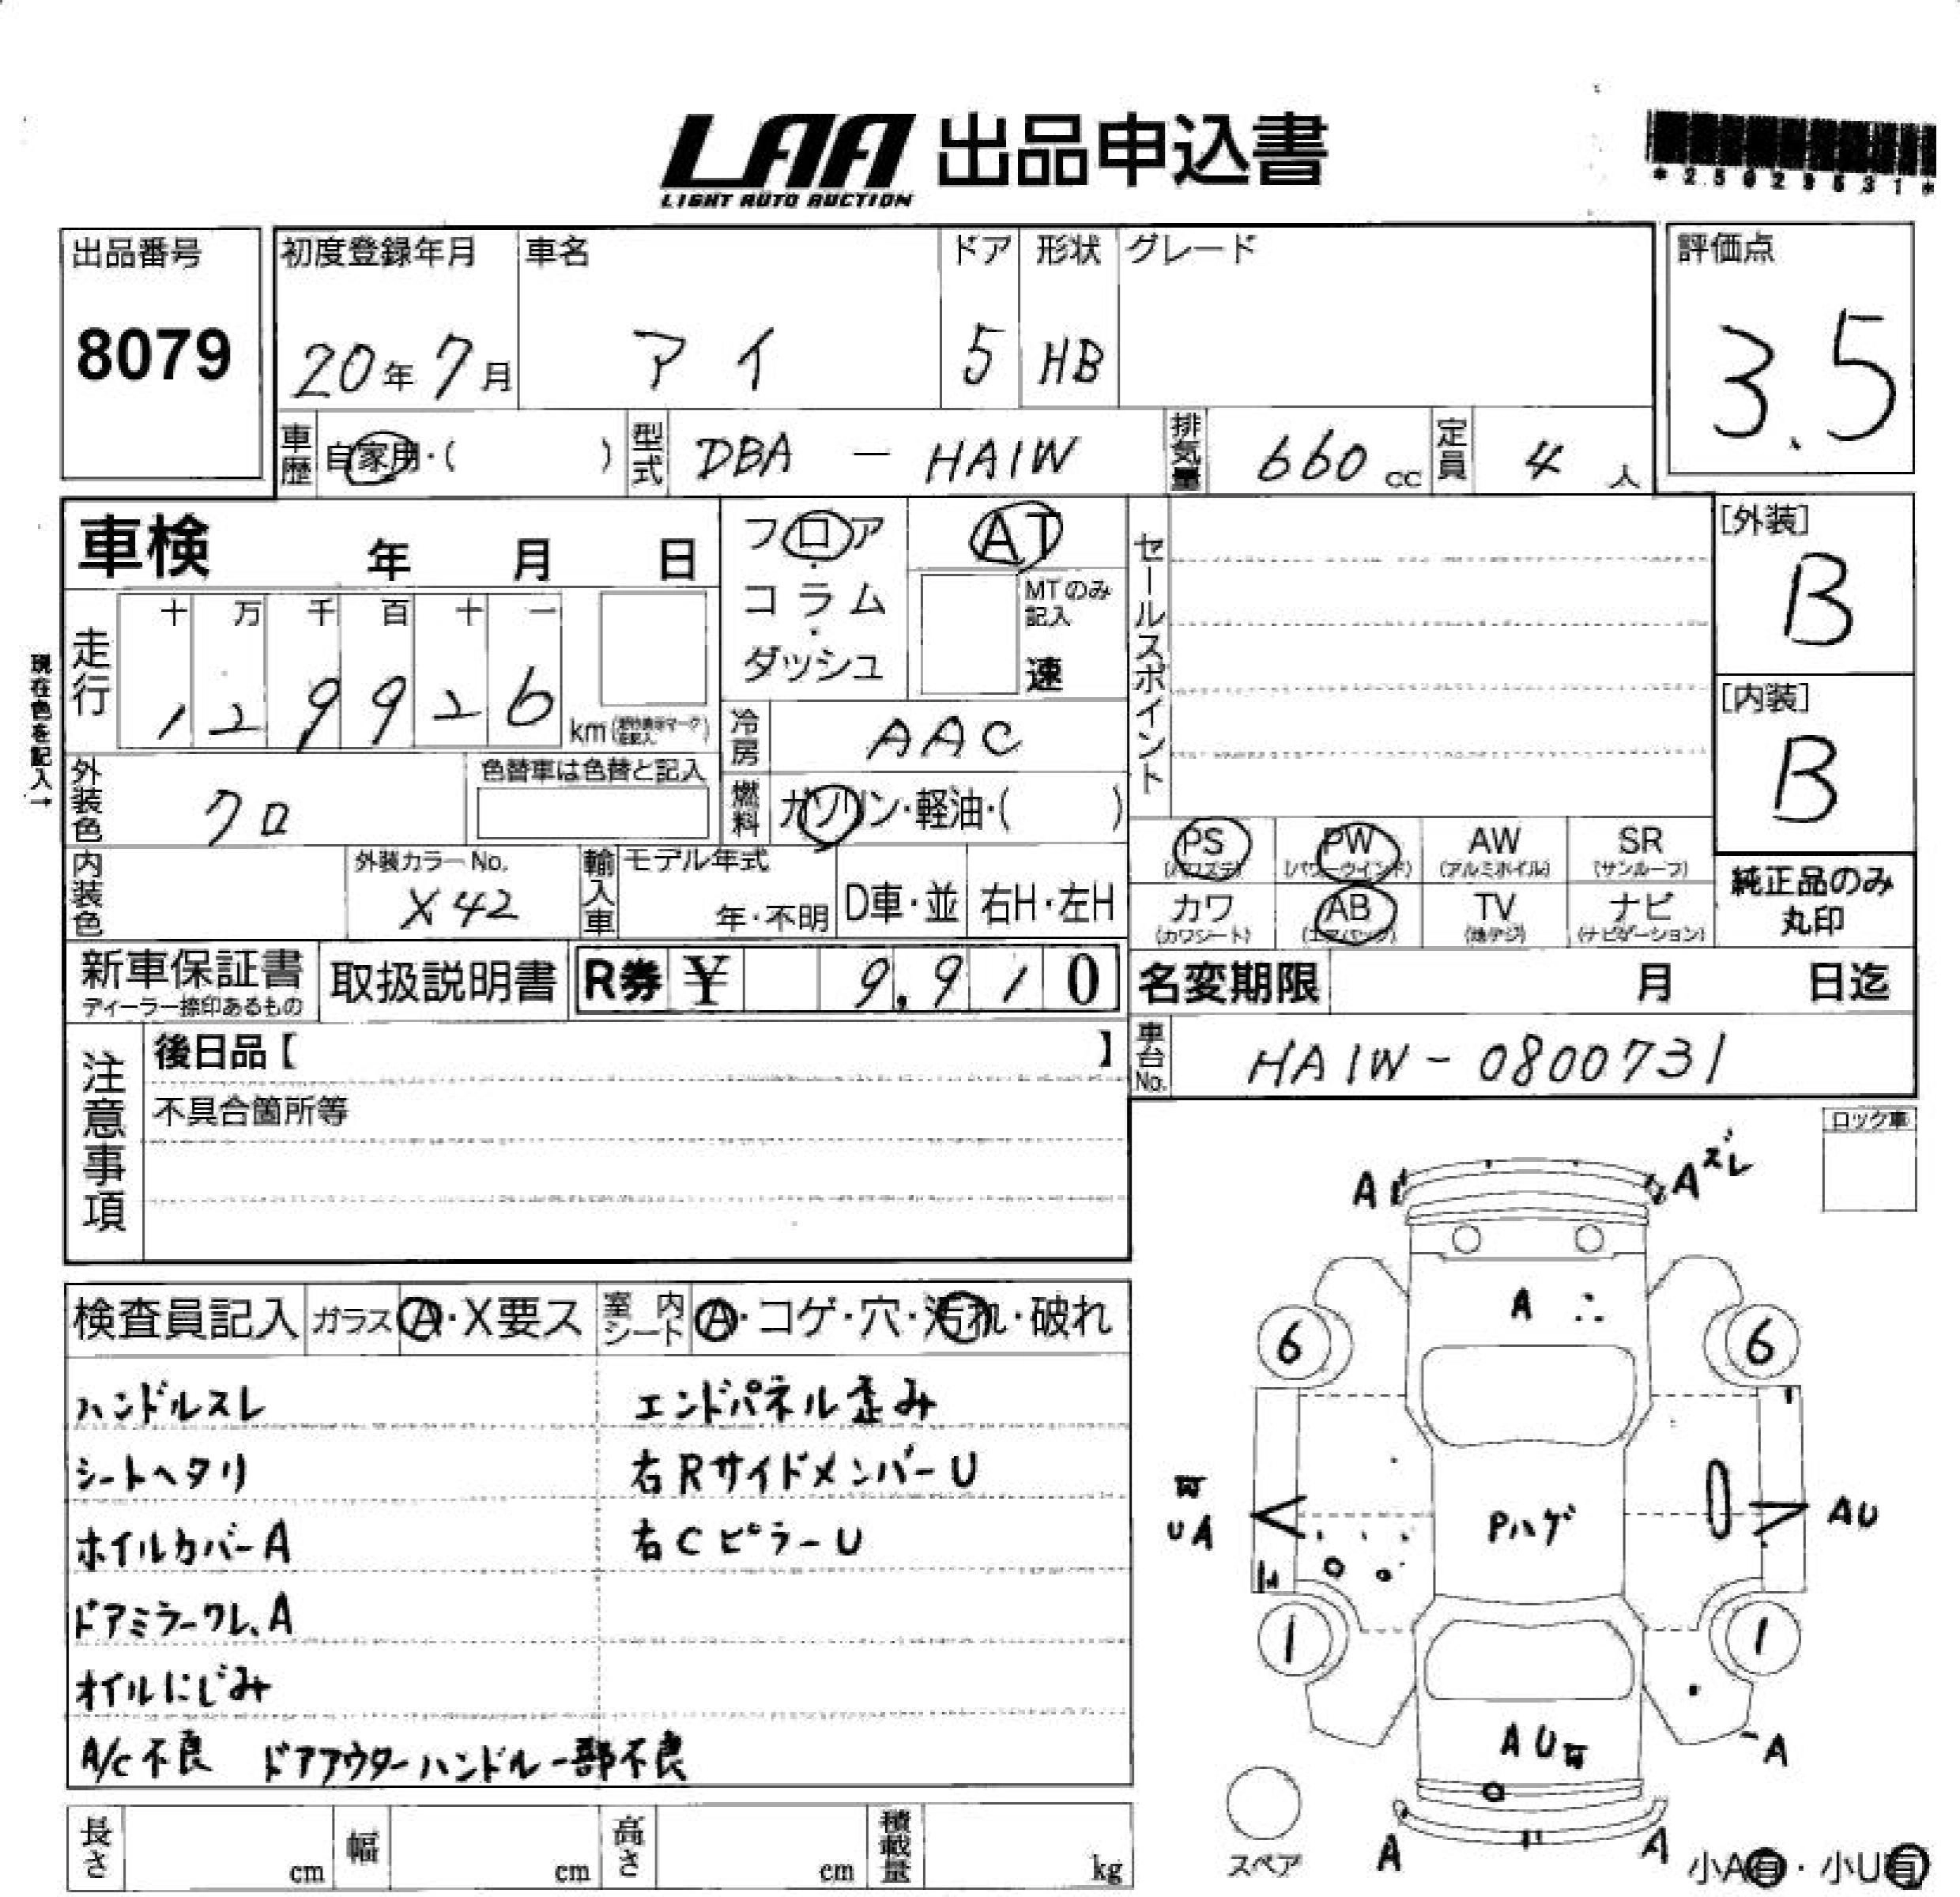 LAA 出品申込書
LIGHT AUTO AUCTION
出品番号
8079
初度登録年月
20年7月
車名
アイ
ドア
5
形状
HB
グレード
評価点
3.5
車歴
自家用・( )
型式
DBA - HA1W
排気量
660 cc
定員
4 人
車検 年 月 日
フロア・コラム・ダッシュ
AT
MTのみ記入
速
セールスポイント
[外装]
B
[内装]
B
現在色を記入→
走行
十 万 千 百 十 一
1 2 9 9 2 6 km
冷房
AAC
外装色
クロ
色替車は色替と記入
燃料
ガソリン・軽油・( )
内装色
外装カラーNo.
X42
輸入車
モデル年式
年・不明
D車・並
右H・左H
PS
(パワステ)
PW
(パワーウインド)
AW
(アルミホイル)
SR
(サンルーフ)
カワ
(カワシート)
AB
(エアバック)
TV
(地デジ)
ナビ
(ナビゲーション)
純正品のみ
丸印
新車保証書
ディーラー捺印あるもの
取扱説明書
R券 ¥ 9,910
名変期限 月 日迄
車台No.
HA1W-0800731
注意事項
後日品【 】
不具合箇所等
ロック車
検査員記入
ガラス A・X要ス
室内シート A・コゲ・穴・汚れ・破れ
ハンドルスレ
エンドパネル歪み
シートヘタリ
右RサイドメンバーU
ホイルカバーA
右CピラーU
ドアミラーワレ、A
オイルにじみ
A/C不良 ドアアウターハンドル一部不良
A
Aズレ
A
6
6
UA
Pハゲ
AU
1
1
AU
A
A
A
スペア
小A有・小U有
長さ cm
幅 cm
高さ cm
積載量 kg